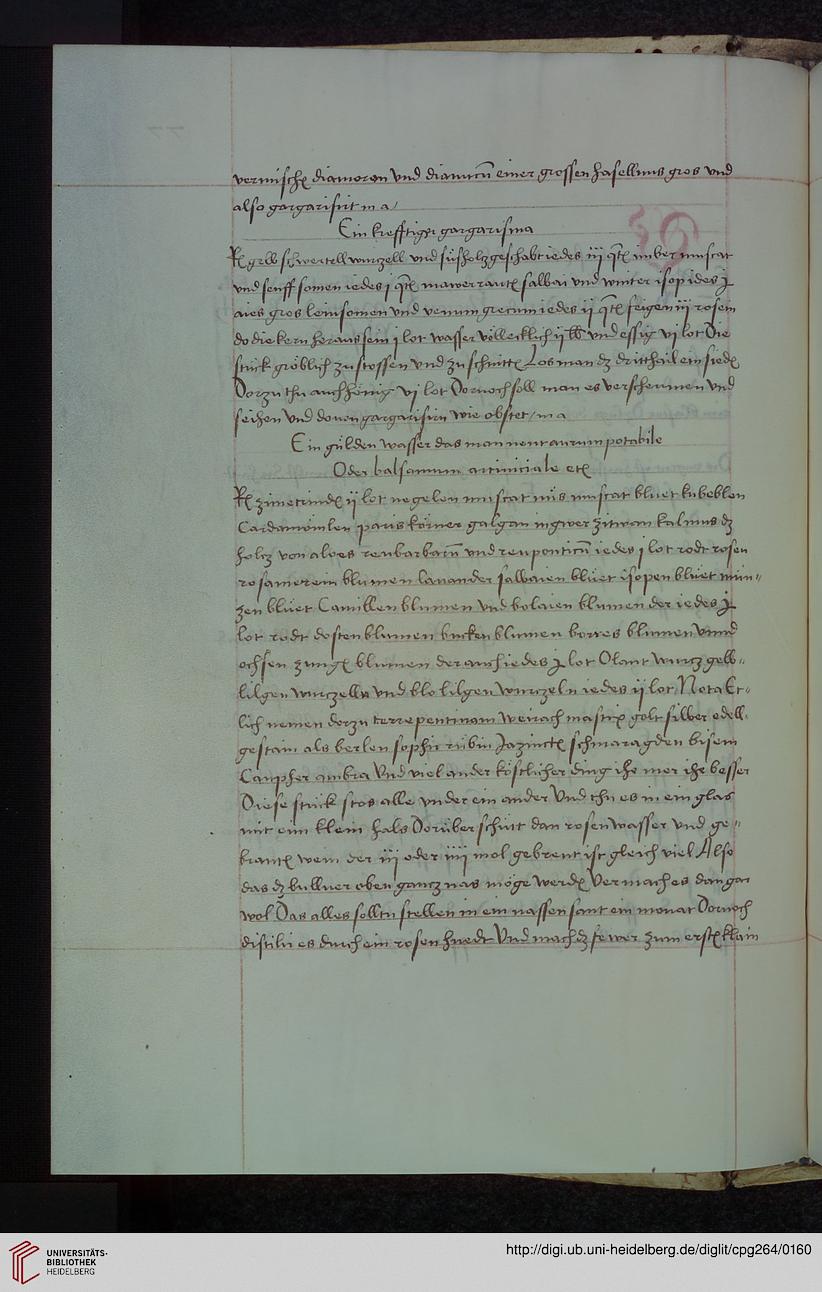 vermischen diamoron vnd dianucū einer grossen haselnus gros vnd
also gargarisirt m a /
Ein krefftiger gargarisma
Rx gelb schwertell wurzell vnd süsholz geschabt iedes iij qrt imber muscat
vnd senff somen iedes j qrt mawer raut salbai vnd winter isop ides
aies gros leinsomen vnd venum grecum iedes ij qrt feigen iij rosein
do die kern heraus sein j lot wasser völlecklich ij lb vnd essig vj lot Die
stuck gröblich zu stossen vnd zu schnitten Los man dz dritthail ein sieden
Dorzu thu auch hönig vj lot Dornoch soll man es verscheumen vnd
seihen vnd douon gargarisirn wie obstet / m a
Ein gülden wasser das man nent aurum potabile
Oder balsamum artiniciale etc
Rx zimetrinden ij lot negelen muscat nüs muscat bluet kubeblen
Cardamömlen paris körner galgan ingwer zitwan kalmus dz
holcz von aloes reubarbarū vnd reuponticū iedes j lot rodt rosen
rosamerein blumen lauander salbaien blüet isopen blüet mün„
zen blüet Camillen blumen vnd bolaien blumen der iedes
lot rodt dosten blumen bucken blumen borres blumen vnnd
ochsen zungen blumen der auch iedes lot Olant wurcz gelb„
lilgen wurzelln vnd blo lilgen wurczeln iedes ij lot Nota Et„
lich nemen dorzu terrepentinam weirach mastix golt silber edell„
gestain als berlen sophir rubin Jazincten schmaragden bisem
Campher ambra Vnd viel ander köstlicher ding ihe mer ihe besser
Diese stuck stos alle vnder ein ander Vnd thu es in ein glas
mit eim klein hals Dorüber schütt dan rosen wasser vnd ge„
branten wein der iij oder iiij mol gebrent ist gleich viel Also
das dz bulluer oben gancz nas möge werden Vermach es dan gar
wol Das alles solltu stellen in ein nassen sant ein monat Dornoch
distilir es durch ein rosen huedt Vnd mach dz fewer zum ersten klain
UNIVERSITÄTS-
BIBLIOTHEK
HEIDELBERG
http://digi.ub.uni-heidelberg.de/diglit/cpg264/0160